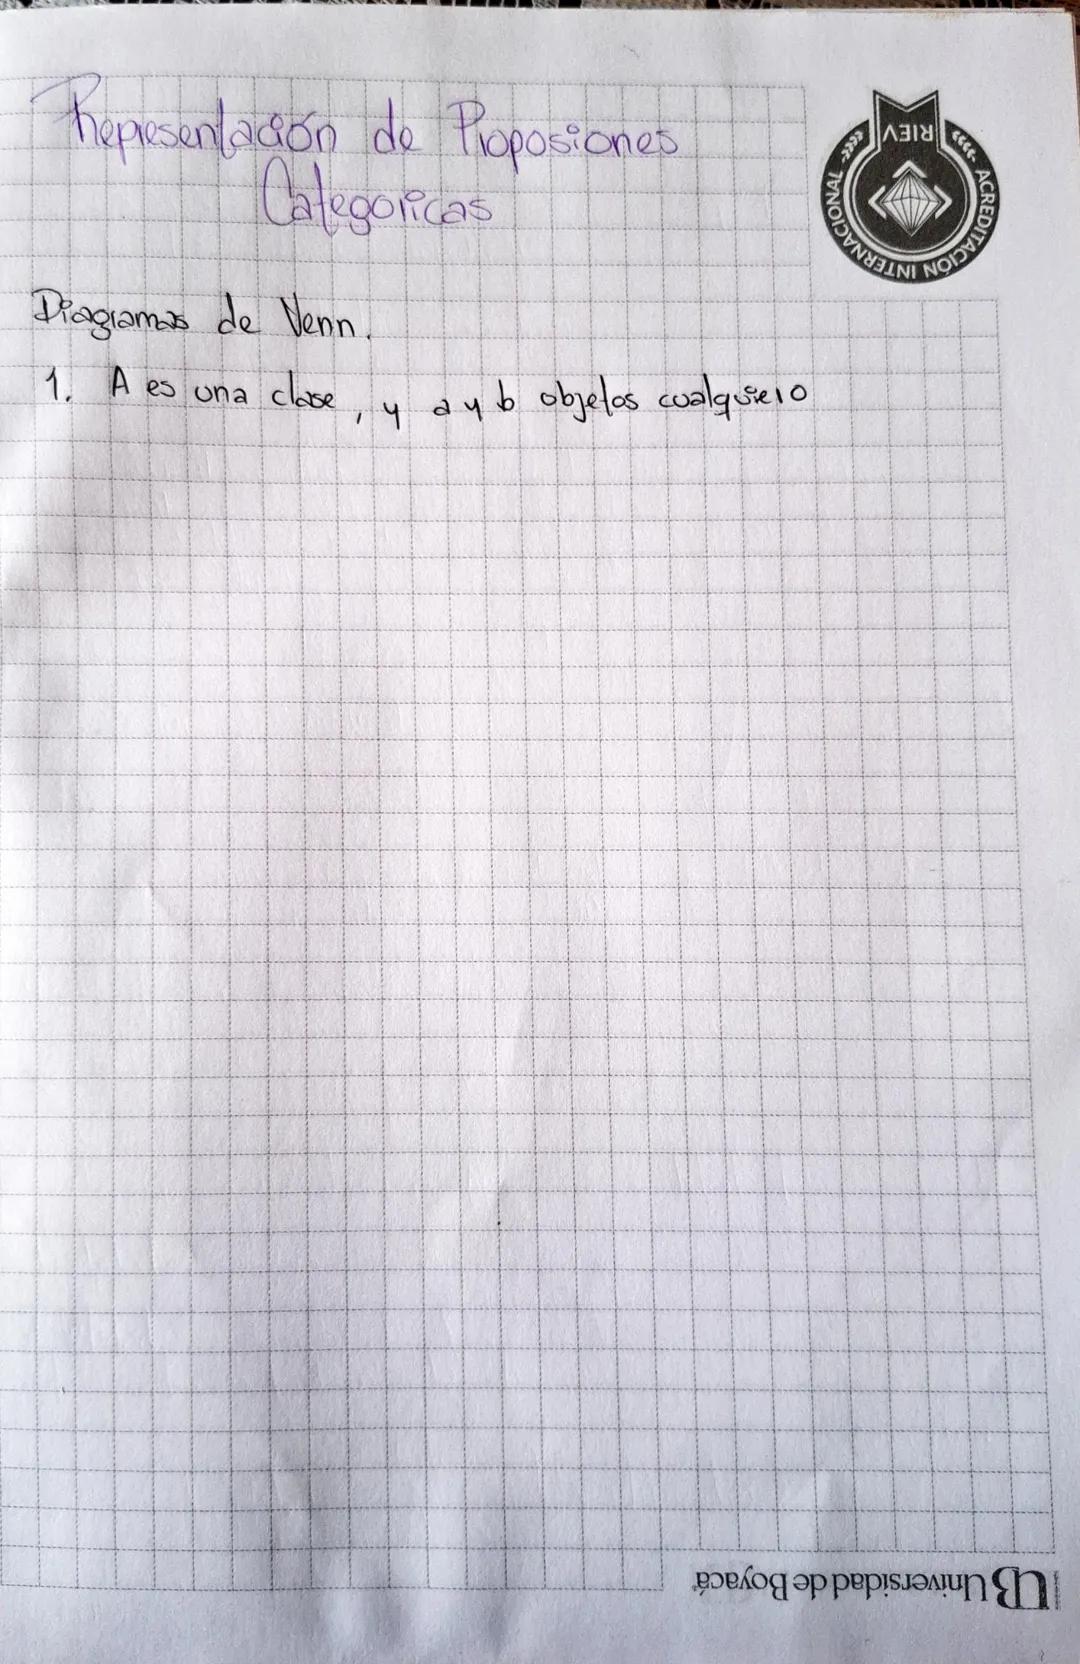 Representación de Proposiones
Categoricas
RIEV
ACREDITACIÓN INTERNACIONAL
Diagramas de Venn.
1. A es una clase, y a y b objetos cualquiero
UB Universidad de Boyacá